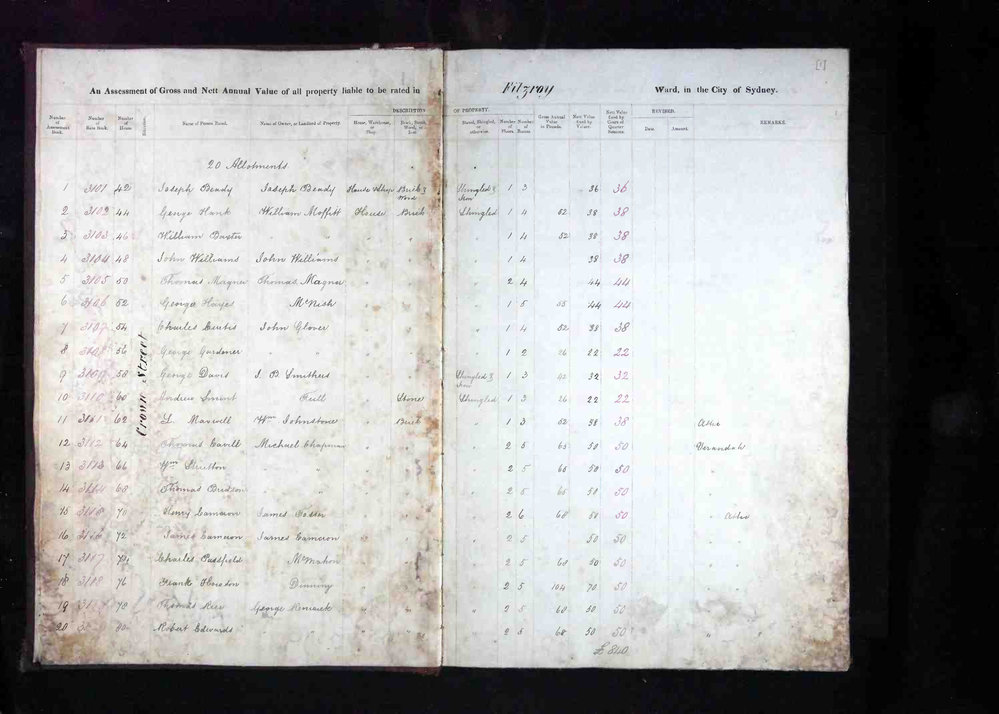 [1]
An Assessment of Gross and Nett Annual Value of all property liable to be rated in Fitzroy Ward, in the City of Sydney.
DESCRIPTION OF PROPERTY. REVISED.
Number of Assessment Book. Number of Rate Book. Number of House Situation. Name of Person Rated. Name of Owner, or Landlord of Property. House, Warehouse, or Shop. Slated, Shingled, or otherwise. Number of Floors. Number of Rooms Gross Annual Value in Pounds. Nett Value fixed by Valuer. Nett Value fixed by Court of Quarter Sessions. Date. Amount. REMARKS.
20 Allotments
Crown Street
1 3101 42 Joseph Beady Joseph Beady House & Shop Brick & Wood Shingled & Iron 1 3 36 36
2 3102 44 George Hank William Moffitt House Brick Shingled 1 4 52 38 38
3 3103 46 William Baxter " " " " 1 4 52 38 38
4 3104 48 John Williams John Williams " " " 1 4 38 38
5 3105 50 Thomas Magner Thomas Magner " " " 2 4 44 44
6 3106 52 George Hayes McNish " " " 1 5 55 44 44
7 3107 54 Charles John Glover " " " 1 4 52 38 38
8 3108 56 George Gardener " " " " 1 2 26 22 22
9 3109 58 George Davis J. B. Smithers " " Shingled & Iron 1 3 42 32 32
10 3110 60 Andrew " Stone Shingled 1 3 26 22 22
11 3111 62 Maxwell Wm Johnstone " Brick " 1 3 52 38 38 Attic
12 3112 64 Thomas Cavill Michael Chapman " " " 2 5 65 50 50 Verandah
13 3113 66 Wm " " " " 2 5 65 50 50 "
14 3114 68 Thomas " " " " 2 5 65 50 50 "
15 3115 70 Henry Cameron James " " " 2 6 68 50 50 " Attic
16 3116 72 James Cameron James Cameron " " " 2 5 50 50 "
17 3117 74 Charles Passfield McMahon " " " 2 5 60 50 50 "
18 3118 76 Frank Dinning " " " 2 5 104 70 50 "
19 78 Thomas George " " " 2 5 60 50 50 "
20 80 Robert Edwards " " " " 2 5 68 50 50 "
£840